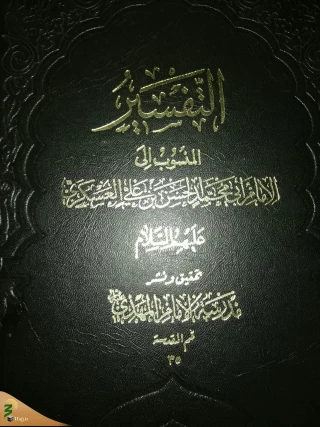 التَّفْسِيرُ
المنسوب إلى
الإمام أبي محمد الحسن بن علي العسكري
عليهم السلام
تحقيق ونشر
مدرسة الإمام المهدي
قم المقدسة
٣٥